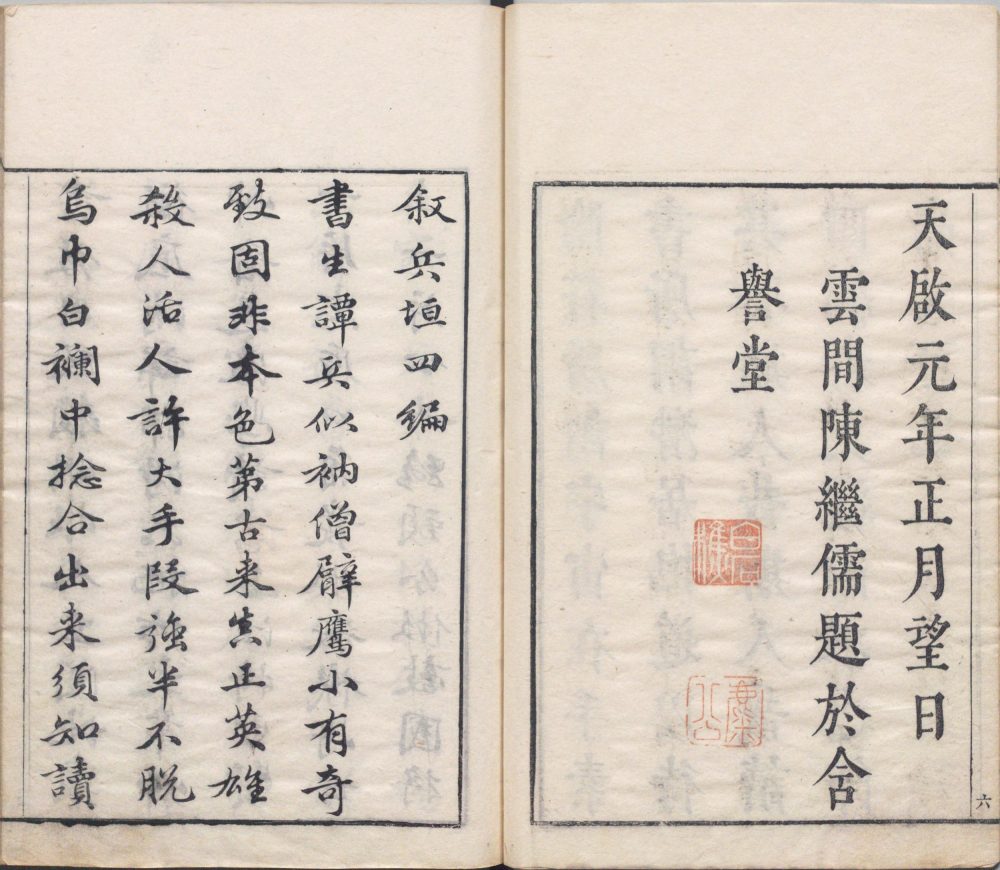 天啟元年正月望日
雲間陳繼儒題於含
譽堂
六
叙兵垣四編
書生譚兵似衲僧臂鷹小有奇
致固非本色第古来真正英雄
殺人活人許大手段强半不脫
烏巾白襴中捻合出来須知讀